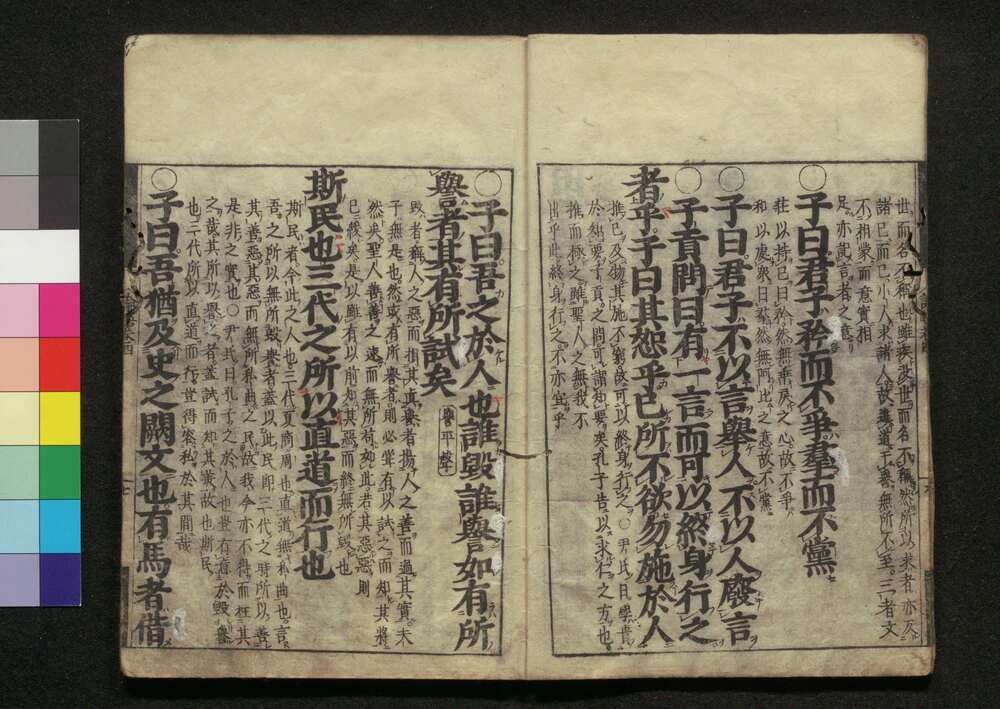 世而名不稱也雖疾沒世而名不稱然所以求者亦反
諸己而已小人求諸人故違道干譽無所不至三者文
不相蒙而意實相
足亦記言者之意
○子曰君子矜而不爭羣而不黨
莊以持己曰矜然無乖戾之心故不爭
和以處衆曰羣然無阿比之意故不黨
○子曰君子不以言舉人不以人廢言
○子貢問曰有一言而可以終身行之
者乎子曰其恕乎己所不欲勿施於人
推己及物其施不窮故可以終身行之○尹氏曰學貴
於知要子貢之問可謂知要矣孔子告以求仁之方也
推而極之雖聖人之無我不
出乎此終身行之不亦宜乎
○子曰吾之於人也誰毀誰譽如有所
譽者其有所試矣
譽平聲
毀者稱人之惡而損其眞譽者揚人之善而過其實夫
子無是也然或有所譽者則必嘗有以試之而知其將
然矣聖人善善之速而無所苟如此若其惡惡則
已緩矣是以雖有以前知其惡而終無所毀也
斯民也三代之所以直道而行也
斯民者今此之人也三代夏商周也直道無私曲也言
吾之所以無所毀譽者蓋以此民即三代之時所以善
其善惡其惡而無所私曲之民故我今亦不得而枉其
是非之實也○尹氏曰孔子之於人也豈有意於毀譽
之哉其所以譽之者蓋試而知其美故也斯民
也三代所以直道而行豈得容私於其間哉
○子曰吾猶及史之闕文也有馬者借